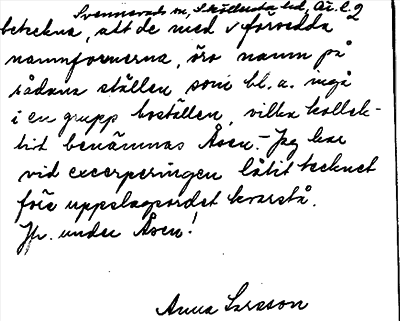 Svennevads sn, Sköllersta hd, Ör. l. 2
betekna, att de med v försedda
namnformerna, äro namn på
sådana ställen som bl. a. ingå
i en grupp boställen, vilka kollek-
tivt benämnas Åsen. – Jag har
vid excerperingen låtit tecknet
före uppslagsordet kvarstå.
Jfr. under Åsen!
Anna Larsson